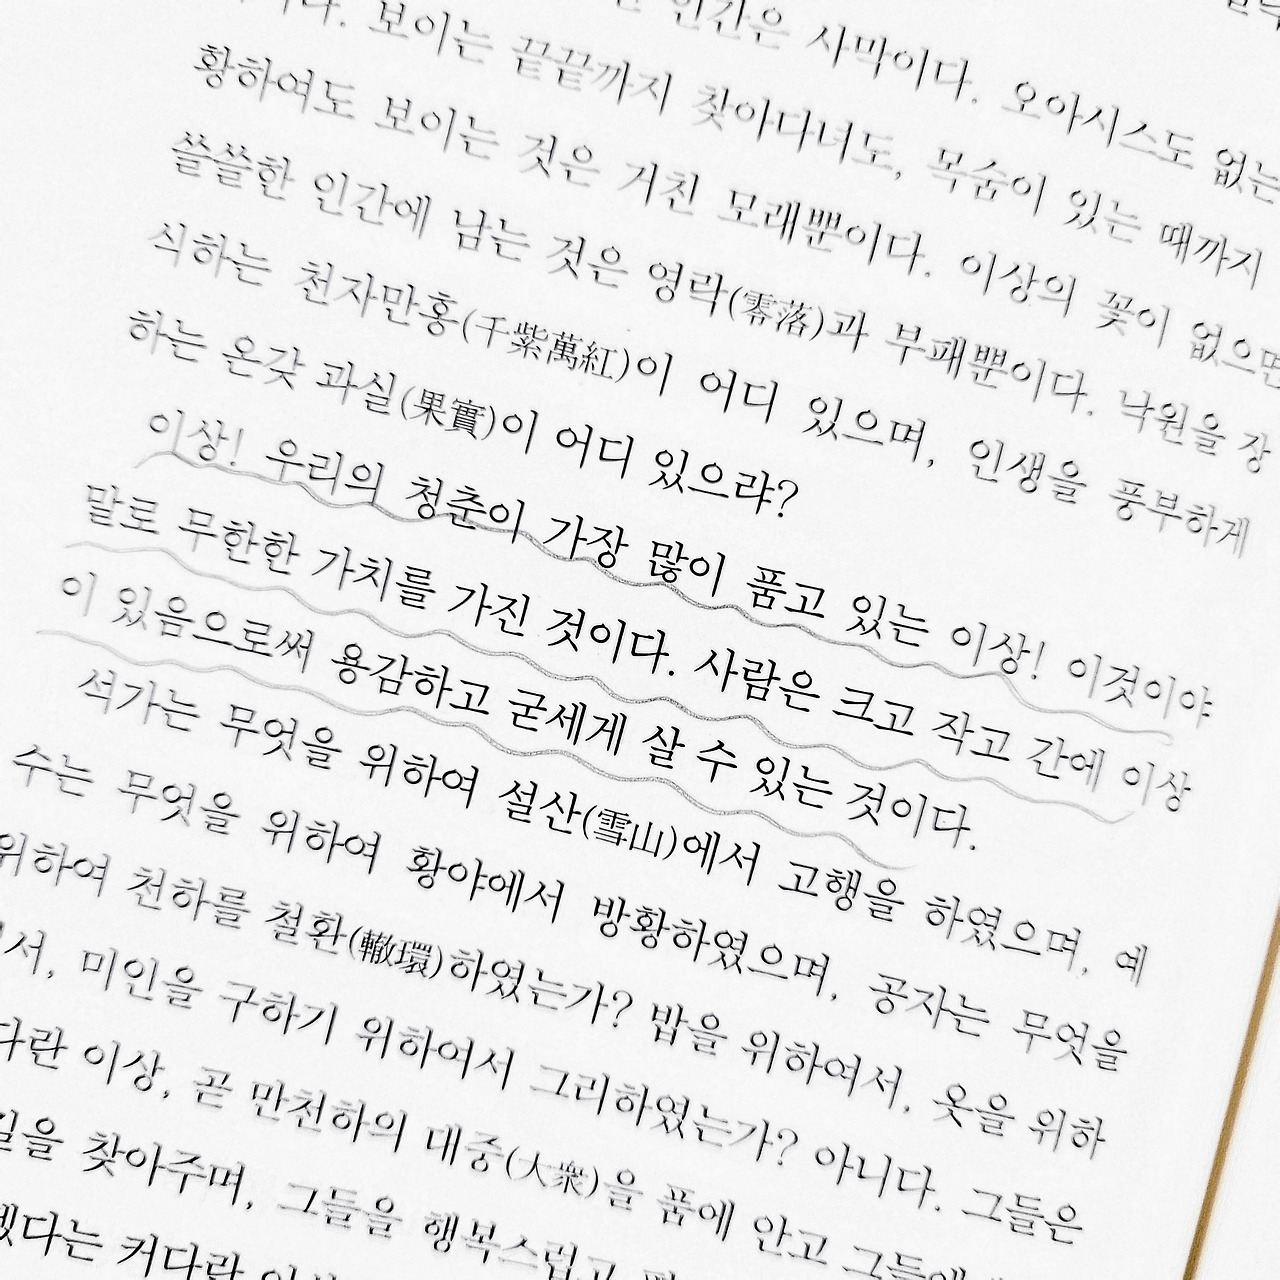 인간은 사막이다. 오아시스도 없는
보이는 끝끝까지 찾아다녀도, 목숨이 있는 때까지
황하여도 보이는 것은 거친 모래뿐이다. 이상의 꽃이 없으면
쓸쓸한 인간에 남는 것은 영락(零落)과 부패뿐이다. 낙원을 장
식하는 천자만홍(千紫萬紅)이 어디 있으며, 인생을 풍부하게
하는 온갖 과실(果實)이 어디 있으랴?
이상! 우리의 청춘이 가장 많이 품고 있는 이상! 이것이야
말로 무한한 가치를 가진 것이다. 사람은 크고 작고 간에 이상
이 있음으로써 용감하고 굳세게 살 수 있는 것이다.
석가는 무엇을 위하여 설산(雪山)에서 고행을 하였으며, 예
수는 무엇을 위하여 황야에서 방황하였으며, 공자는 무엇을
위하여 천하를 철환(轍環)하였는가? 밥을 위하여서, 옷을 위하
서, 미인을 구하기 위하여서 그리하였는가? 아니다. 그들은
다란 이상, 곧 만천하의 대중(大衆)을 품에 안고 그들에
길을 찾아주며, 그들을 행복스럽고
겠다는 커다란